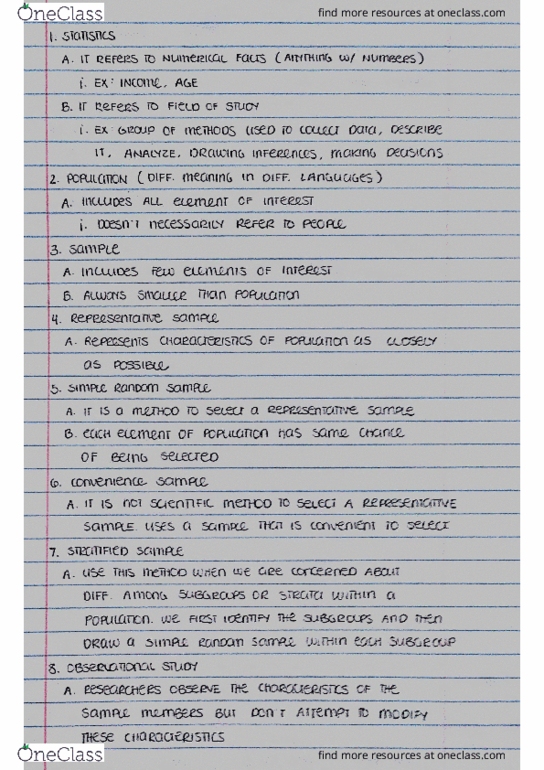 OneClass
find more resources at oneclass.com
1. STATISTICS
A. IT REFERS TO NUMERICAL FACTS (ANYTHING W/ NUMBERS)
i. EX: INCOME, AGE
B. IT REFERS TO FIELD OF STUDY
i. EX: GROUP OF METHODS USED TO COLLECT DATA, DESCRIBE
IT, ANALYZE, DRAWING INFERENCES, MAKING DECISIONS
2. POPULATION (DIFF. MEANING IN DIFF. LANGUAGES)
A. INCLUDES ALL ELEMENT OF INTEREST
i. DOESN'T NECESSARILY REFER TO PEOPLE
3. SAMPLE
A. INCLUDES FEW ELEMENTS OF INTEREST
B. ALWAYS SMALLER THAN POPULATION
4. REPRESENTATIVE SAMPLE
A. REPRESENTS CHARACTERISTICS OF POPULATION AS CLOSELY
AS POSSIBLE
5. SIMPLE RANDOM SAMPLE
A. IT IS A METHOD TO SELECT A REPRESENTATIVE SAMPLE
B. EACH ELEMENT OF POPULATION HAS SAME CHANCE
OF BEING SELECTED
6. CONVENIENCE SAMPLE
A. IT IS NOT SCIENTIFIC METHOD TO SELECT A REPRESENTATIVE
SAMPLE. USES A SAMPLE THAT IS CONVENIENT TO SELECT
7. STRATIFIED SAMPLE
A. USE THIS METHOD WHEN WE ARE CONCERNED ABOUT
DIFF. AMONG SUBGROUPS OR STRATA WITHIN A
POPULATION. WE FIRST IDENTIFY THE SUBGROUPS AND THEN
DRAW A SIMPLE RANDOM SAMPLE WITHIN EACH SUBGROUP
8. OBSERVATIONAL STUDY
A. RESEARCHERS OBSERVE THE CHARACTERISTICS OF THE
SAMPLE MEMBERS BUT DON'T ATTEMPT TO MODIFY
THESE CHARACTERISTICS
OneClass
find more resources at oneclass.com